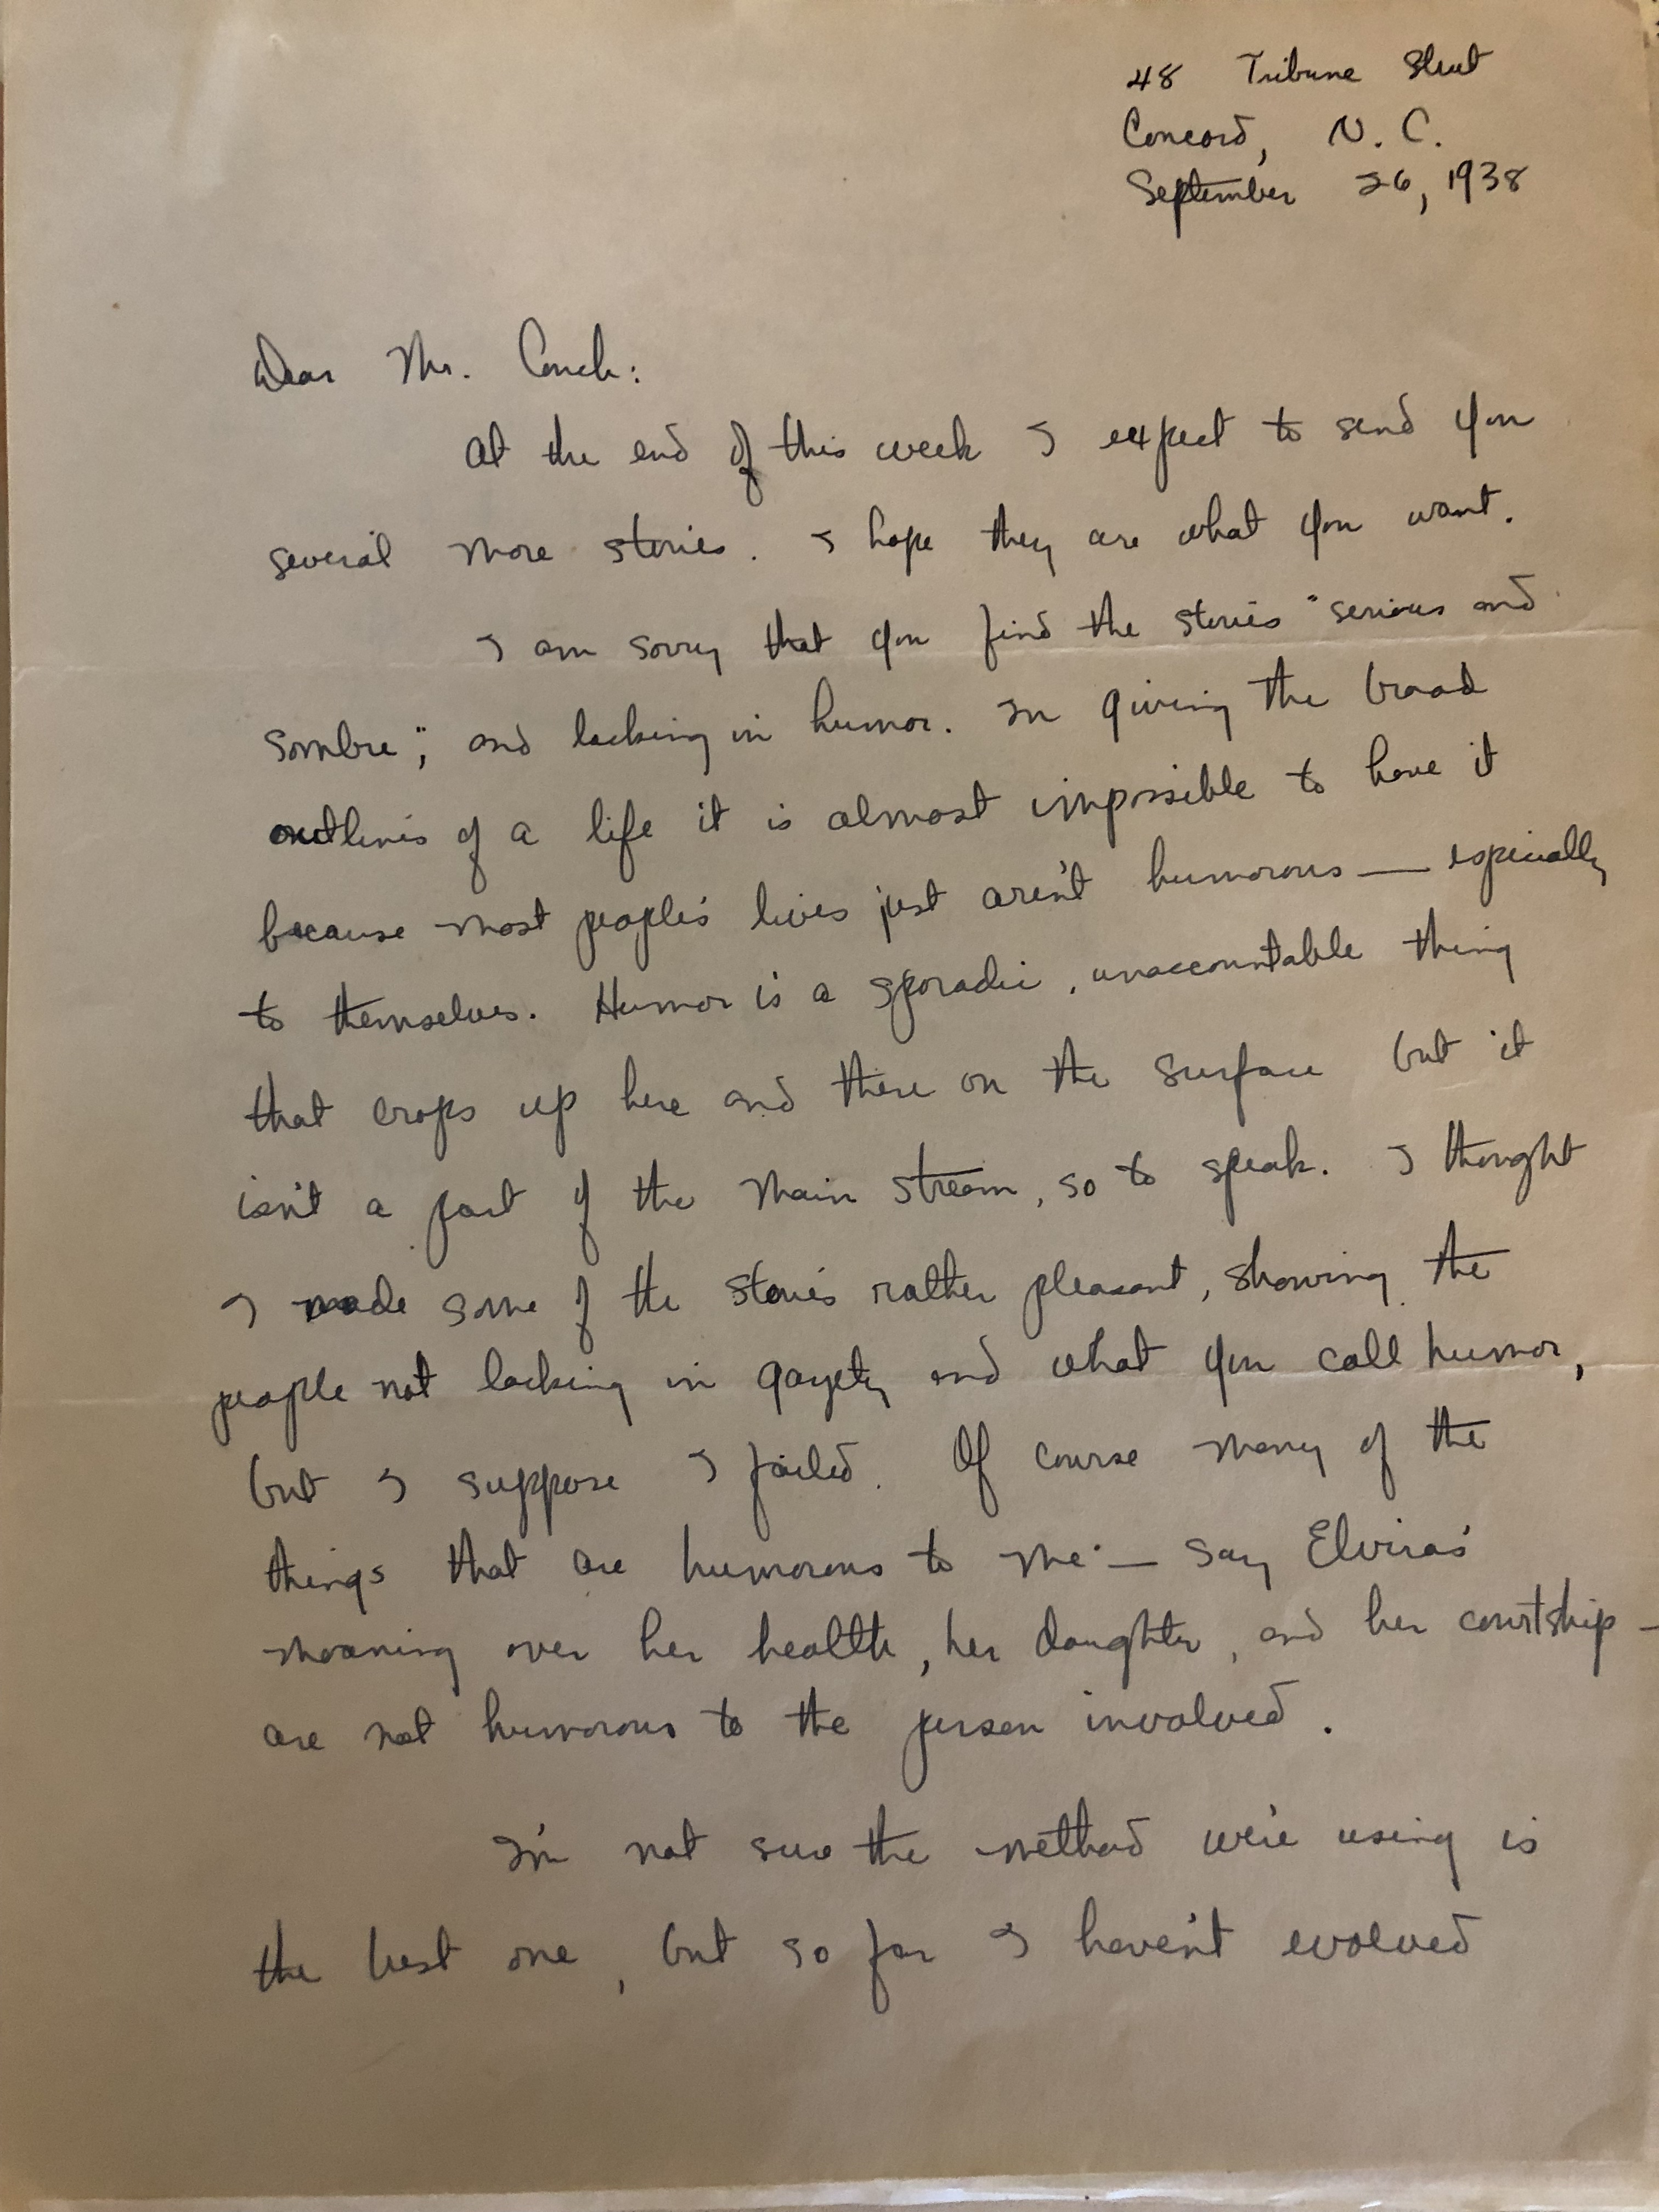 48 Tribune Street
Concord, N. C.
September 26, 1938
Dear Mr. Couch:
At the end of this week I expect to send you
several more stories. I hope they are what you want.
I am sorry that you find the stories "serious and
sombre", and lacking in humor. In giving the broad
outlines of a life it is almost impossible to have it
because most people's lives just aren't humorous — especially
to themselves. Humor is a sporadic, unaccountable thing
that crops up here and there on the surface but it
isn't a part of the main stream, so to speak. I thought
I made some of the stories rather pleasant, showing the
people not lacking in gayety and what you call humor,
but I suppose I failed. Of course many of the
things that are humorous to me — say Elvira's
moaning over her health, her daughter, and her courtship —
are not humorous to the person involved.
I'm not sure the method we're using is
the best one, but so far I haven't evolved